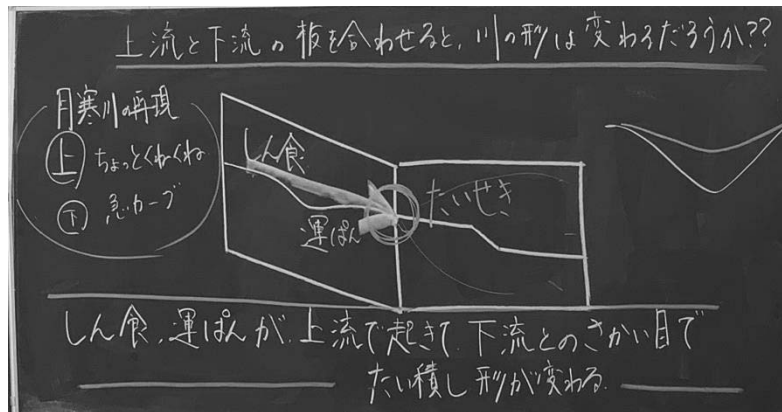 上流と下流の板を合わせると、川の形は変わるだろうか??
月寒川の再現
上 ちょっとくねくね
下 急カーブ
しん食
運ぱん
たいせき
しん食、運ぱんが、上流で起きて、下流とのさかい目で
たい積し形が変わる。